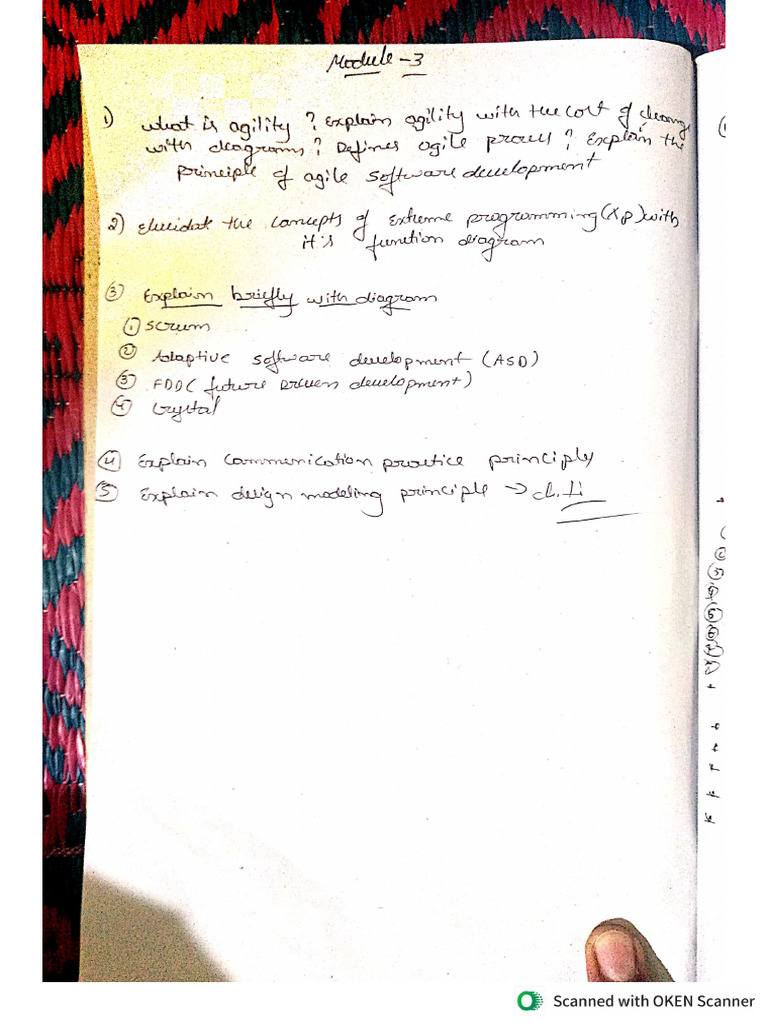 Module - 3
1) what is agility ? Explain agility with the cost of change
with diagrams ? Defines agile process ? Explain the
principle of agile software development
2) Elucidate the concepts of Extreme programming (XP) with
it's function diagram
③ Explain briefly with diagram
① scrum
② Adaptive software development (ASD)
③ FDD ( future Driven development)
④ Crystal
④ Explain Communication practice principles
⑤ Explain design modeling principle →
Scanned with OKEN Scanner